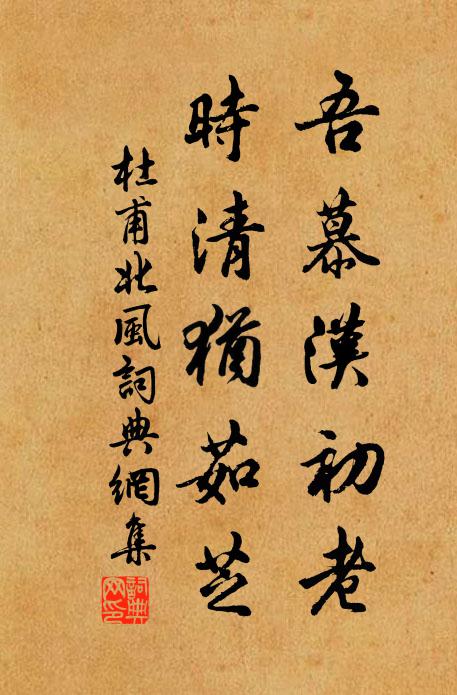 吾慕漢初老
時清猶茹芝
杜甫北風詞典網集
詞典
网印